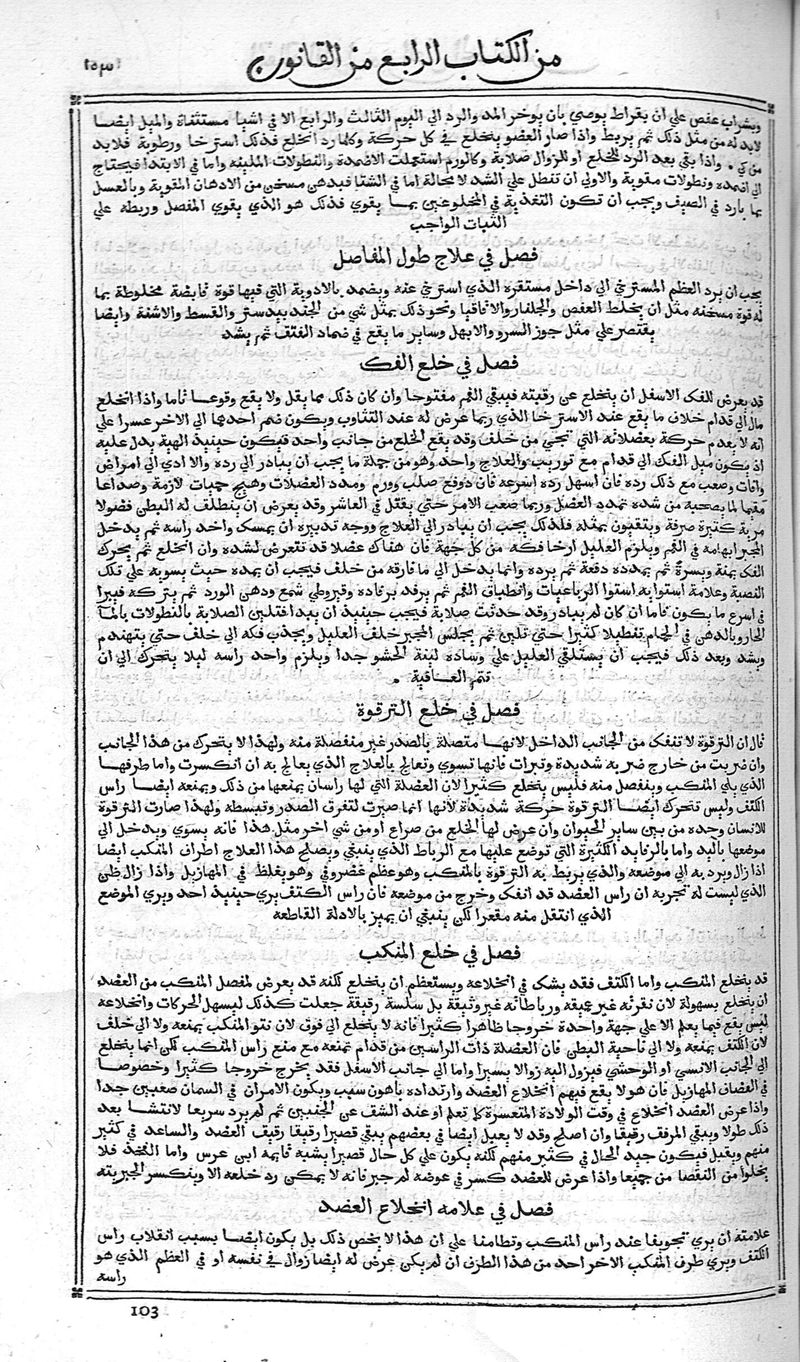 من الكتاب الرابع من القانون
وبشراب عفص علي ان بقراط يوصي بان يوخر المد والرد الي اليوم الثالث والرابع الا في اشيا مستثناة والميل ايضا
لابد له من مثل ذلك ثم يربط واذا صار العضو ينخلع في كل حركة وكلما رد انخلع فذلك استرخا ورطوبة فلابد
من كي . واذا بقي بعد الرد للخلع او للزوال صلابة وكالورم استعملت الاضمدة والنطولات الملينه واما في الابتدا فيحتاج
الي اضمده ونطولات مقوية والاولي ان تنطل علي الشد لا محالة اما في الشتا فبدهن مسخن من الادهان المقوية وبالعسل
بما بارد في الصيف ويجب ان تكون التغذية في المخلوعين بما يقوي فذلك هو الذي يقوي المفصل وربطه علي
الثبات الواجب
فصل في علاج طول المفاصل
يجب ان يرد العظم المسترخي الي داخل مستقره الذي استرخي عنه ويضمد بالادوية التي فيها قوة قابضة مخلوطة بما
له قوة مسخنه مثل ان يخلط العفص والجلنار والاقاقيا ونحو ذلك بمثل شي من الجندبيدستر والقسط والاشنة وايضا
يقتصر علي مثل جوز السرو والابهل وساير ما يقع في ضماد الفتف ثم يشد
فصل في خلع الفك
قد يعرض للفك الاسفل ان ينخلع عن رقيته فيبقي الفم مفتوحا وان كان ذلك مما يقل ولا يقع وقوعا تاما واذا انخلع
مال الي قدام خلاف ما يقع عند الاسترخا الذي ربما عرض له عند التثاوب ويكون ضم احدهما الي الاخر عسرا علي
انه لا يعدم حركة بعضلاته التي تجي من خلف وقد يقع الخلع من جانب واحد فيكون حينيذ الهية يدل عليه
اذ يكون ميل الفك الي قدام مع توريب والعلاج واحد وهو من جملة ما يجب ان يبادر الي رده والا ادي الي امراض
وافات وصعب مع ذلك رده فان اسهل رده اسرعه فان دوفع صلب وورم ومدد العضلات وهيج حميات لازمة وصداعا
مقيما لما يصحبه من شده تمدد العضل وربما صعب الامر حتي يقتل في العاشر وقد يعرض ان ينطلف له البطن فضولا
مرية كثيرة صرفة ويتقيون بمثله فلذلك يجب ان يبادر الي العلاج ووجه تدبيره ان يمسك واحد راسه ثم يدخل
المجبر ابهامه في الفم ويلزم العليل ارخا فكه من كل جهة فان هناك عضلا قد تتعرض لشده وان انخلع ثم يحرك
الفك يمنة ويسرة ثم يمدده دفعة ثم يرده وانما يدخل الي ما فارقه من خلف فيجب ان يمده حيث يسويه علي تلك
النصبة وعلامة استوايه استوا الرباعيات وانطباق الفم ثم يرفد برفاده وقيروطي شمع ودهن الورد ثم يتركه فيبرا
في اسرع ما يكون فاما ان كان لم يبادر وقد حدثت صلابة فيجب حينيذ ان يبدا فتلين الصلابة بالنطولات بالمآ
الحار وبالدهن في الحمام تنطيلا كثيرا حتي تلين ثم يجلس المجبر خلف العليل ويجذب فكه الي خلف حتي يتهندم
ويشد وبعد ذلك فيجب ان يستلقي العليل علي وساده لينة الحشو جدا ويلزم واحد راسه ليلا يتحرك الي ان
تتم العافية .
فصل في خلع الترقوة
قال ان الترقوة لا تنفك من الجانب الداخل لانها متصلة بالصدر غير منفصلة منه ولهذا لا يتحرك من هذا الجانب
وان ضربت من خارج ضربه شديدة وتبرات فانها تسوي وتعالج بالعلاج الذي يعالج به ان انكسرت واما طرفها
الذي يلي المنكب وينفصل منه فليس ينخلع كثيرا لان العضلة التي لها راسان يمنعها من ذلك ويمنعه ايضا راس
الكتف وليس تتحرك ايضا الترقوة حركة شديدة لانها انما صيرت لتفرق الصدر وتبسطه ولهذا صارت الترقوة
للانسان وحده من بين ساير الحيوان وان عرض لها الخلع من صراع او من شي اخر مثل هذا فانه يسوي ويدخل الي
موضعها باليد واما بالرفايد الكثيرة التي توضع عليها مع الرباط الذي ينبغي ويصلح هذا العلاج اطراف المنكب ايضا
اذا زال ويرد به الي موضعه والذي يربط به الترقوة بالمنكب وهو عظم غضروفي وهو يغلظ في المهازيل واذا زال ظن
الذي ليست له تجربه ان راس العضد قد انفك وخرج من موضعه فان راس الكتف يري حينيذ احد ويري الموضع
الذي انتقل منه مقعرا لكن ينبغي ان يميز بالادلة القاطعه
فصل في خلع المنكب
قد ينخلع المنكب واما الكتف فقد يشك في انخلاعه ويستعظم ان ينخلع لكنه قد يعرض لمفصل المنكب من العضد
ان ينخلع بسهولة لان نقرته غير عميقه ورباطاته غير وثيقة بل سلسة رقيقة جعلت كذلك ليسهل الحركات وانخلاعه
ليس يقع فيما يعلم الا علي جهة واحدة خروجا ظاهرا كثيرا فانه لا ينخلع الي فوق لان نتو المنكب يمنعه ولا الي خلف
لان الكتف يمنعه ولا الي ناحية البطن فان العضلة ذات الراسين من قدام تمنعه مع منع راس المنكب لكن انما ينخلع
الي الجانب الانسي او الوحشي فيزول اليه زوالا يسيرا واما الي جانب الاسفل فقد يخرج خروجا كثيرا وخصوصا
في القضاف المهازيل فان هولا يقع فيهم انخلاع العضد وارتداده باهون سبب ويكون الامران في السمان صعبين جدا
واذا عرض العضد انخلاع في وقت الولادة المتعسرة كما تعلم او عند الشف عن الجنبين ثم لم يرد سريعا لانتشا بعد
ذلك طولا ويبقي المرفف رقيقا وان اصلح وقد لا يعبل ايضا في بعضهم يبقي قصيرا رقيقا رقيف العضد والساعد في كثير
منهم ويقبل فيكون جيد الحال في كثير منهم لكنه يكون علي كل حال قصيرا يشبه قايمه ابن عرس واما الفخذ فلا
يخلوا من النقصا من جميعا واذا عرض للعضد كسر في عوضه لم جبر فانه لا يمكن رد خلعه الا وينكسر الجبر بته
فصل في علامه انخلاع العضد
علامته ان يري تجويفا عند راس المنكب وتطامنا علي ان هذا لا يخص ذلك بل يكون ايضا بسبب انقلاب راس
الكتف ويري طرف المنكب الاخر احد من هذا الطرف ان لم يكن عرض له ايضا زوال في نفسه او في العظم الذي هو
راسه
103